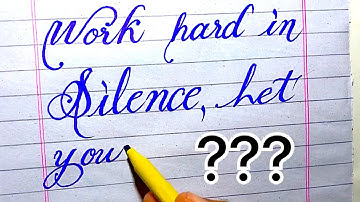 Work hard in
Silence, Let
you ???